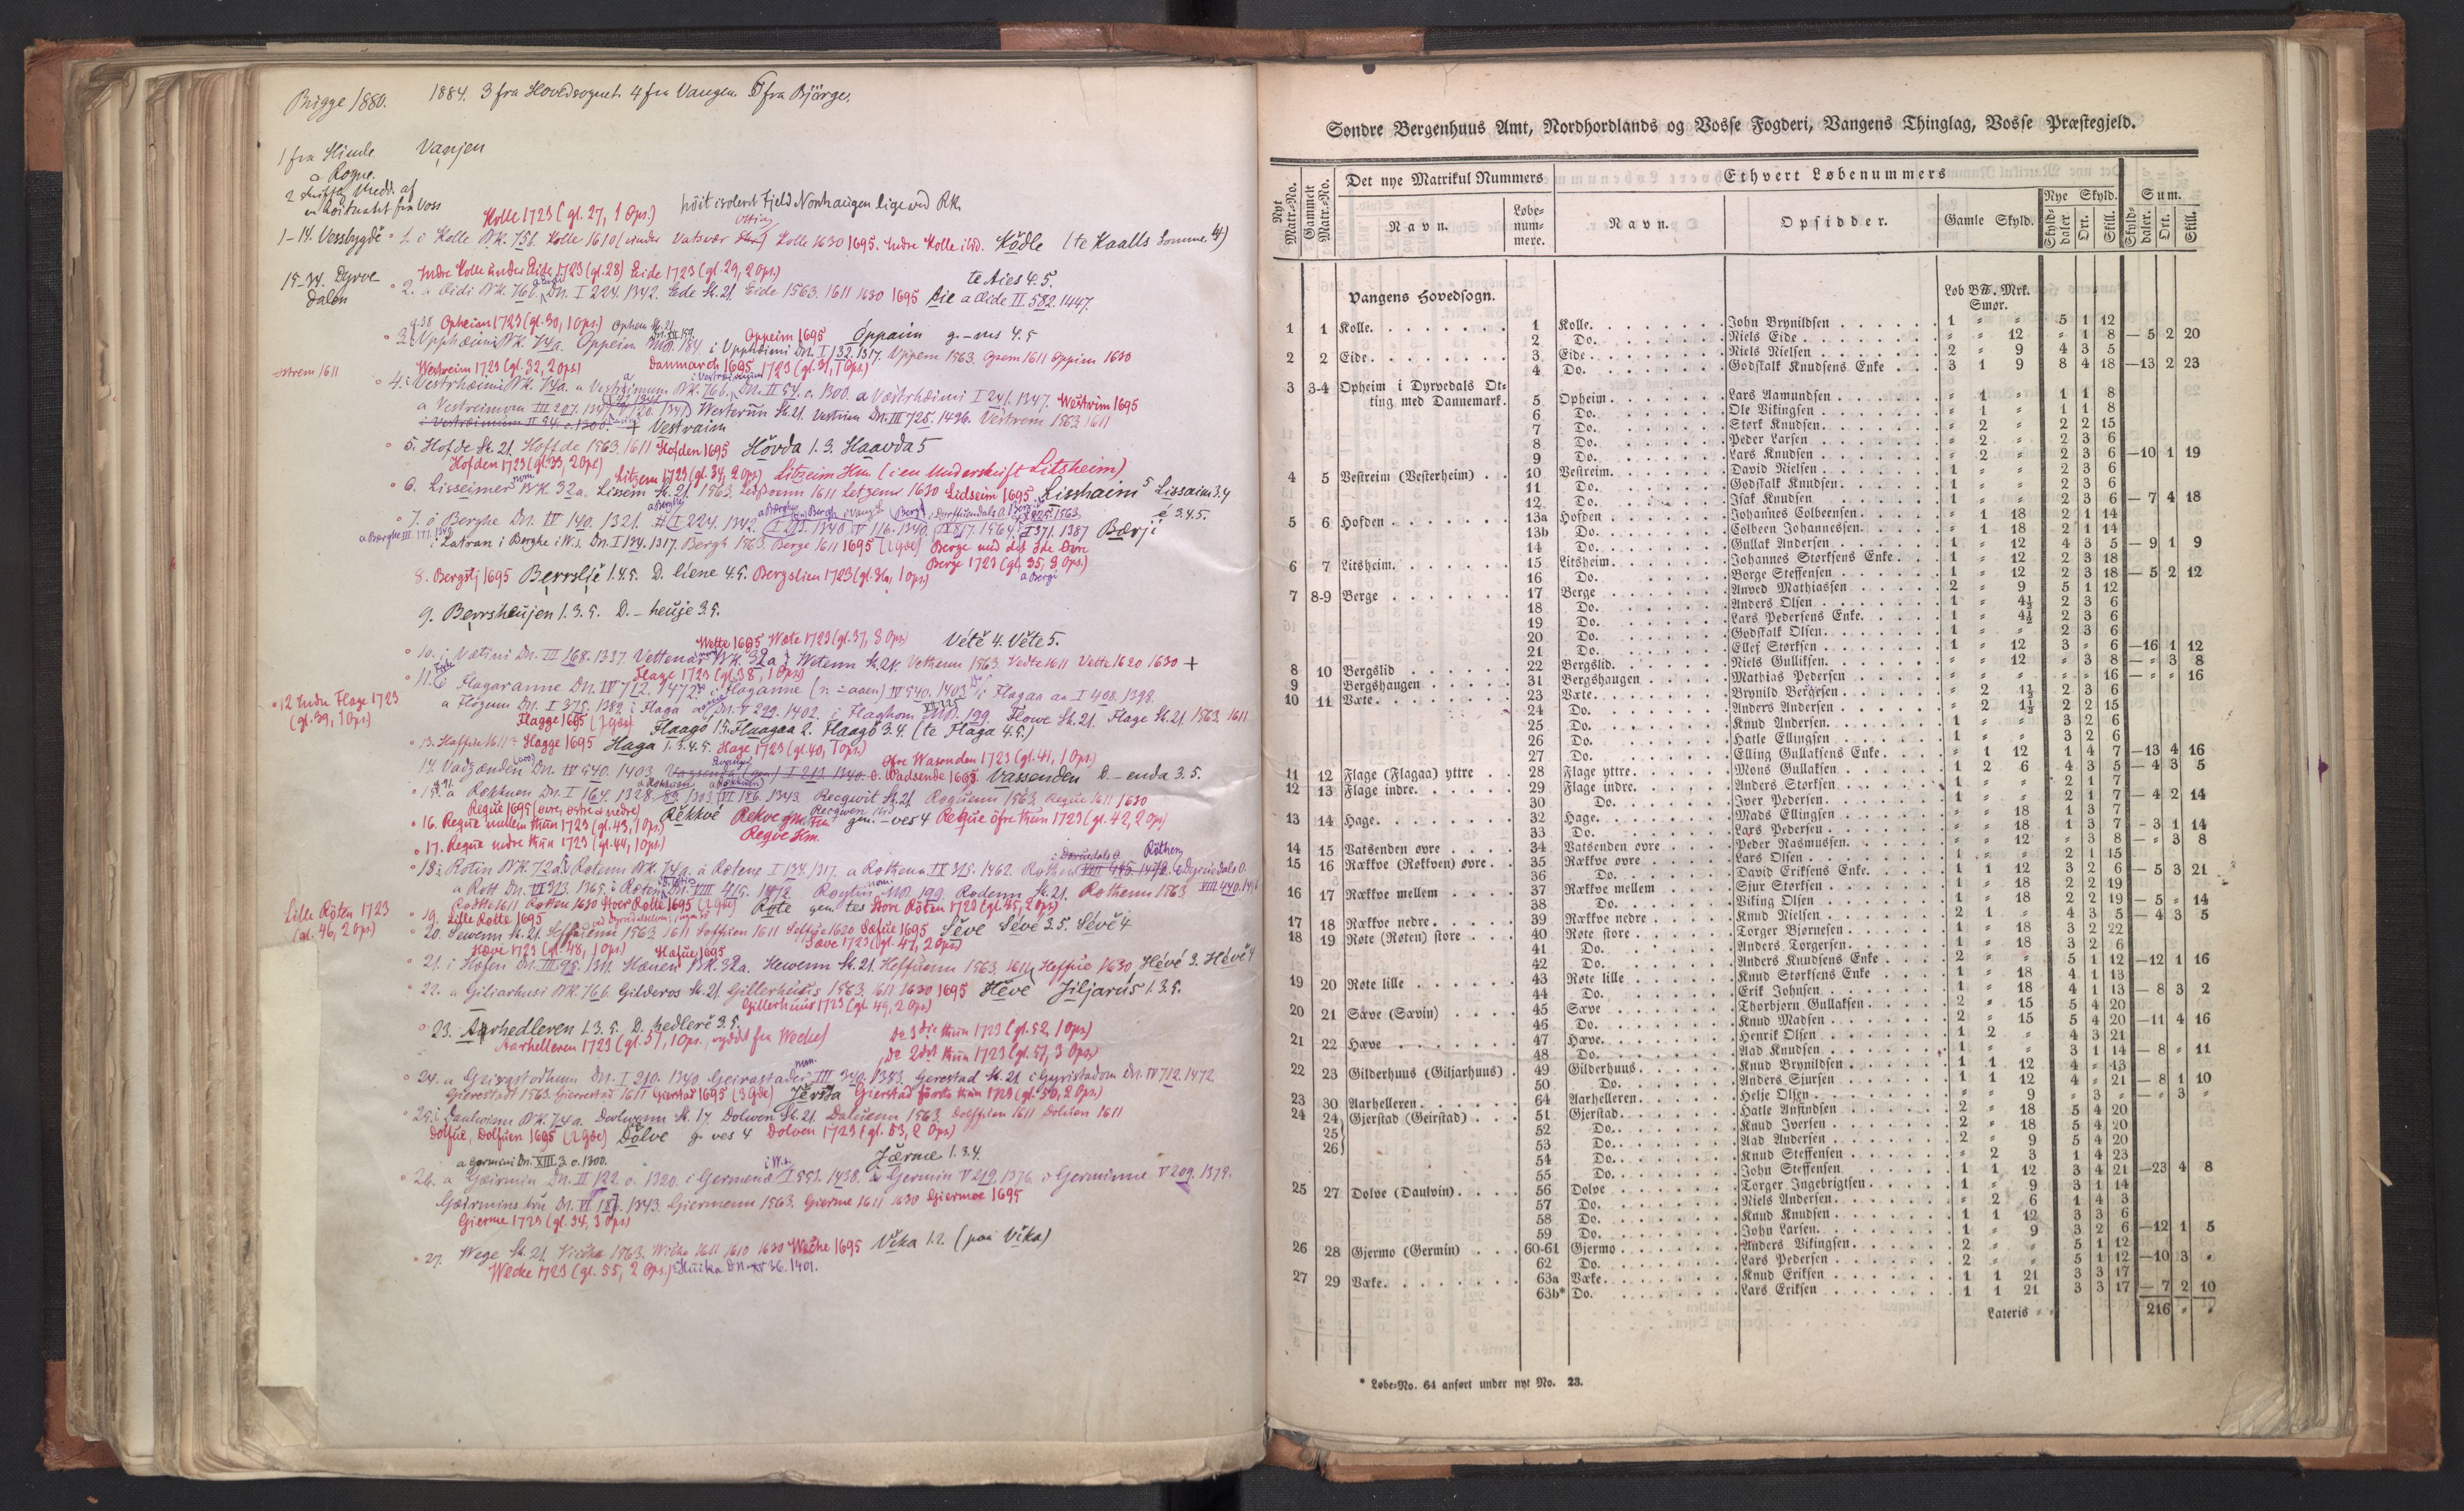 Brigge 1880. 1884. 3 fra Hovedsognet. 4 fra Vangen. 5 fra Bjørge.
1 fra Himle Vanjen
a Rogne.
en fra Voss
höit isoleret Fjeld Nonhaugen lige ved RK.
Kolle 1723 (gl. 27, 1 Ops.)
1-14. Vossbygdě
1. i Kolle BK. 75b. Kolle 1610 (under Vatsvær Kolle 1630 1695. Indre Kolle ibid. Ködle (te Kaalls Somme. 4)
Indre Kolle under Eide 1723 (gl. 28) Eide 1723 (gl. 29, 2 Ops.) te Aies 4. 5.
15-34. Dyrve-
dalen
2. a Eidi BK. 76b. Dn. I 224. 1342. Eide St. 21. Eide 1563. 1611 1630 1695 Aie a Eide II. 582. 1447.
Opheim 1723 (gl. 30, 1 Ops.) Ophem St. 21.
Oppeim 1695 Óppaim g. -ms 4. 5
3. Upphæimi BK. 74a. i Upphæimi Dn. I 132. 1317. Uppem 1563. Opem 1611 Oppim 1630
Westreim 1723 (gl. 32, 2 Ops.) Danmarch 1695 1723 (gl. 31, 1 Ops.)
4. i Vestrhæimi BK. 74a. a Vestræimum BK. 76b. Dn. II 54. c. 1300. a Væstrhæimi I 241. 1347. Westrim 1695
a Vestreimom III 207. 1347 Westerum St. 21. Vestrim Dn. III 725. 1496. Vestrem 1563 1611
Vestraim
5. Hofde St. 21. Hoffde 1563. 1611 Hofden 1695 Hövda 1. 3. Haavda 5
Hofden 1723 (gl. 33, 2 Ops.)
Litzem 1723 (gl. 34, 2 Ops.) Litzeim Hm. (i en Underskrift Litsheim)
6. Lisseimer BK. 32a. Lissem St. 21. 1563. 1611 Letzem 1630 Lidseim 1695. Lisshaim 5 Lissaim 3. 4
7. ö Berghe Dn. IV 140. 1321. I 224. 1342. I 371. 1387 Bærji é 3. 4. 5.
i Latran i Berghe i W.s. Dn. I 134. 1317. Bergh 1563. Berge 1611 1695 (2 gde) Berge med det ste Øvre
Berge 1723 (gl. 35, 3 Ops.)
8. Bergslj 1695 Berrslje 1. 4. 5. D. liene 4. 5. Bergslien 1723 (gl. 36, 1 Ops.)
9. Berrsheujen 1. 3. 5. D. - heuje 3. 5.
Wette 1695 Wæte 1723 (gl. 37, 3 Ops.) Vétě 4. Věte 5.
10. i Vætini Dn. III 168. 1337. Vettenar BK. 32a. Wetenn St. 21. Vethenn 1563. Vedte 1611 Vette 1620 1630 +
Flage 1723 (gl. 38, 1 Ops.)
11. Flagaranne Dn. IV 712. 1472. i Flaganne (n = aaen) IV 540. 1403 i Flagaa aa I 408. 1398.
12 Indre Flage 1723
(gl. 39, 1 Ops.)
a Flogum Dn. I 375. 1382. i Flaga Dn. V 299. 1402. i Flaghom MD. 199. Flowe St. 21. Flage St. 21. 1563. 1611
Flagge 1695 (2 gde) Flaago 1. 5. Flaagaa 2. Flaagö 3. 4. (te Flaga 4. 5.)
13. Haffue 1611 = Hagge 1695 Haga 1. 3. 4. 5. Hage 1723 (gl. 40, 1 Ops.)
øfre Wasenden 1723 (gl. 41, 1 Ops.)
14. Vadzænden Dn. IV 540. 1403. O. Wadsende 1695. Vassenden D. - enda 3. 5.
15. a Rokkuen Dn. I 164. 1328. VI 186. 1343. Recgwit St. 21. Roquenn 1563. Reque 1611 1630
Reque 1695 (øvre, østre a nedre) Rěkkvé Rekve gen. - ves 4 Reque öfre thun 1723 (gl. 42, 2 Ops.)
16. Reque mellem thun 1723 (gl. 43, 1 Ops.) Reqve Hm.
17. Reque nedre thun 1723 (gl. 44, 1 Ops.)
18. i Rotin BK. 72a. Rotenn BK. 74a. a Rotene I 134. 1317. a Rothenn IV 315. 1462.
a Rott Dn. VI 313. 1365. MD. 199. Rodenn St. 21. Rothenn 1563
Lille Röten 1723
(gl. 46, 2 Ops.)
Rotte 1611 Rotten 1630 Stoer Rotte 1695 (2 gde) Rote gen. tes Store Röten 1723 (gl. 45, 2 Ops.)
19. Lille Rotte 1695
20. Sewenn St. 21. Seffuenn 1563 1611 Soffuen 1611 Seffue 1620 Sæfue 1695 Séve Sévé 3. 5. Sévě 4
Sæve 1723 (gl. 47, 2 Ops.)
Hæve 1723 (gl. 48, 1 Ops.) Hafue 1695
21. i Hæfen Dn. III 95. 1311. Hæuen BK. 32a. Hewenn St. 21. Heffuenn 1563. 1611. Heffue 1630 Hévé 3. Hévě 4
22. a Giliarhusi BK. 76b. Gilderos St. 21. Gillerhuus 1563. 1611 1630 1695 Héve Jiljarus 1. 3. 5.
Gillerhuus 1723 (gl. 49, 2 Ops.)
23. Aarhedleren 1. 3. 5. D. hedlerě 3. 5.
Aarhelleren 1723 (gl. 57, 1 Ops., ryddet fra Wecke) De 3die thun 1723 (gl. 52, 1 Ops.)
De 2det thun 1723 (gl. 51, 3 Ops.)
24. a Geirgstodhum Dn. I 210. 1340. Geirastader III 340. 1383. Gerestad St. 21. i Gyristadom Dn. IV 712. 1472
Gierestadt 1563. Gierrestad 1611 Gierstad 1695 (3 gde) Jěrsta Gierstad første thun 1723 (gl. 50, 2 Ops.)
25. i Daulvom BK. 74a. Dolwenn St. 17. Dolwen St. 21. Daluenn 1563. Dolffuen 1611 Doluen 1611
Dolfue, Dolfuen 1695 (2 gde) Dólve g. ves 4 Dolven 1723 (gl. 53, 2 Ops.)
a Germini Dn. XIII 3. c. 1300. Jærme 1. 3. 4.
26. a Gæirmin Dn. II 122 c. 1320. i Germene I 551. 1438. a Germin V 219. 1376. i Germinne V 209. 1379.
Gæirmins bru Dn. VI 187. 1343. Giermenn 1563. Gierme 1611 1630 Giermoe 1695
Gierme 1723 (gl. 54, 3 Ops.)
27. Wege St. 21. Vicka 1563. Wicke 1611 1610 1630 Wecke 1695 Véka 1. 2. (paa Véka)
Wecke 1723 (gl. 55, 2 Ops.) Huika Dn. XV 36. 1401.
Søndre Bergenhuus Amt, Nordhordlands og Vosse Fogderi, Vangens Thinglag, Vosse Præstegjeld.
Nyt Matr.-No. Gammelt Matr.-No. Det nye Matrikul Nummers Ethvert Løbenummers
Navn. Løbe-nummere. Navn. Opsidder. Gamle Skyld. Nye Skyld. Sum.
Skylddaler. Ort. Skill. Skylddaler. Ort. Skill.
Vangens Hovedsogn. Løb B℔. Mrk. Smør.
1 1 Kolle. 1 Kolle. John Brynildsen 1 " " 5 1 12
2 Do. Niels Eide " " 12 " 1 8 — 5 2 20
2 2 Eide 3 Eide Niels Nielsen 2 " 9 4 3 5
4 Do. Godskalk Knudsens Enke 3 1 9 8 4 18 —13 2 23
3 3-4 Opheim i Dyrvedals Ot-
ting med Dannemark. 5 Opheim Lars Aamundsen " 1 " 1 1 8
6 Do. Ole Vikingsen " 1 " 1 1 8
7 Do. Stork Knudsen " 2 " 2 2 15
8 Do. Peder Larsen " 2 " 2 3 6
9 Do. Lars Knudsen " 2 " 2 3 6 —10 1 19
4 5 Vestreim (Vesterheim) 10 Vestreim. David Nielsen 1 " " 2 3 6
11 Do. Godskalk Knudsen 1 " " 2 3 6
12 Do. Isak Knudsen 1 " " 2 3 6 — 7 4 18
5 6 Hofden 13a Hofden Johannes Colbeensen " 1 18 2 1 14
13b Do. Colbeen Johannessen " 1 18 2 1 14
14 Do. Gullak Andersen 1 " 12 4 3 5 — 9 1 9
6 7 Litsheim. 15 Litsheim. Johannes Storksens Enke 1 " 12 2 3 18
16 Do. Børge Steffensen 1 " 12 2 3 18 — 5 2 12
7 8-9 Berge 17 Berge Anved Mathiassen 2 " 9 5 1 12
18 Do. Anders Olsen 1 " 4½ 2 3 6
19 Do. Lars Pedersens Enke 1 " 4½ 2 3 6
20 Do. Godskalk Olsen 1 " " 2 3 6
21 Do. Ellef Storksen 1 " 12 3 " 6 —16 1 12
8 10 Bergslid 22 Bergslid. Niels Gulliksen " " 12 " 3 8 — " 3 8
9 Bergshaugen 31 Bergshaugen Mathias Pedersen " " " " " 16 — " " 16
10 11 Væte 23 Væte Brynild Bergesen " 2 1½ 2 3 6
24 Do. Anders Andersen " 2 1½ 2 2 15
25 Do. Knud Andersen 1 " " 3 2 6
26 Do. Hatle Ellingsen 1 " " 3 2 6
27 Do. Elling Gullaksens Enke " 1 12 1 4 7 —13 4 16
11 12 Flage (Flagaa) yttre 28 Flage yttre Mons Gullaksen 1 2 6 4 3 5 — 4 3 5
12 13 Flage indre 29 Flage indre Anders Storksen 1 " " 2 1 7
30 Do. Iver Pedersen 1 " " 2 1 7 — 4 2 14
13 14 Hage 32 Hage Mads Ellingsen " " 18 1 3 7
33 Do. Lars Pedersen " " 18 1 3 7 — 3 1 14
14 15 Vatsenden øvre 34 Vatsenden øvre Peder Rasmussen " " 12 " 3 8 — " 3 8
15 16 Rækkve (Rokkven) øvre 35 Rækkve øvre Lars Olsen 1 " " 2 1 15
36 Do. David Eriksens Enke 1 1 12 3 2 6 — 5 3 21
16 17 Rækkve mellem 37 Rækkve mellem Sjur Storksen 1 " 18 2 2 19
38 Do. Viking Olsen 1 " 18 2 2 19 — 5 " 14
17 18 Rækkve nedre 39 Rækkve nedre Knud Nielsen 2 1 " 4 3 5 — 4 3 5
18 19 Røte (Røten) store 40 Røte store Torger Bjørnesen 1 " 18 3 2 22
41 Do. Anders Torgersen 1 " 18 3 2 6
42 Do. Anders Knudsens Enke 2 " " 5 1 12 —12 1 16
19 20 Røte lille 43 Røte lille Knud Storksens Enke 1 " 18 4 1 13
44 Do. Erik Johnsen 1 " 18 4 1 13 — 8 3 2
20 21 Sæve (Sævin) 45 Sæve Thorbjørn Gullaksen 2 " 15 5 4 20
46 Do. Knud Madsen 2 " 15 5 4 20 —11 4 16
21 22 Hæve 47 Hæve Henrik Olsen 1 2 " 4 3 21
48 Do. Aad Knudsen 1 " " 3 1 14 — 8 " 11
22 23 Gilderhuus (Giljarhuus) 49 Gilderhuus Knud Brynildsen 1 1 12 4 " 13
50 Do. Anders Sjursen 1 1 12 4 " 21 — 8 1 10
23 30 Aarhelleren 64 Aarhelleren Helje Olsen " " 9 " 3 " — " 3 "
24 24 Gjerstad (Geirstad) 51 Gjerstad Hatle Anfindsen 2 " 18 5 4 20
25 52 Do. Knud Iversen 2 " 18 5 4 20
26 53 Do. Aad Andersen 2 " 9 5 4 20
54 Do. Knud Steffensen " 2 3 1 4 23
55 Do. John Steffensen 1 1 12 3 4 21 —23 4 8
25 27 Dolve (Daulvin) 56 Dolve Torger Ingebrigtsen 1 " 9 3 1 14
57 Do. Niels Andersen " 2 6 1 4 3
58 Do. Knud Knudsen 1 1 12 3 3 6
59 Do. John Larsen 1 " 9 3 2 6 —12 1 5
26 28 Gjermo (Germin) 60-61 Gjermo Anders Vikingsen 2 " " 5 1 12
62 Do. Lars Pedersen 2 " " 5 1 12 —10 3 "
27 29 Væke 63a Væke Knud Eriksen 1 1 21 3 3 17
63b* Do. Lars Eriksen 1 1 21 3 3 17 — 7 2 10
Lateris " " 216 " "
* Løbe-No. 64 anført under nyt No. 23.